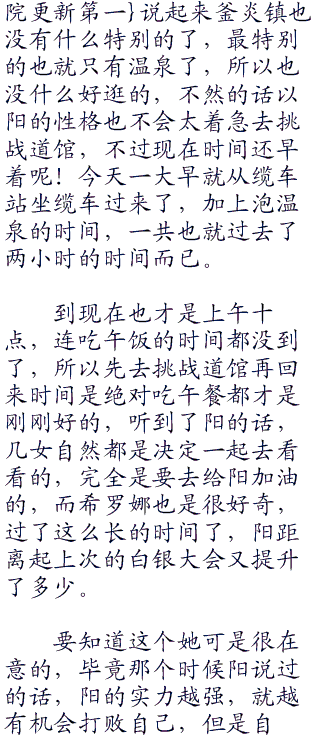 院更新第一}说起来釜炎镇也
没有什么特别的了，最特别
的也就只有温泉了，所以也
没什么好逛的，不然的话以
阳的性格也不会太着急去挑
战道馆，不过现在时间还早
着呢！今天一大早就从缆车
站坐缆车过来了，加上泡温
泉的时间，一共也就过去了
两小时的时间而已。
到现在也才是上午十
点，连吃午饭的时间都没到
了，所以先去挑战道馆再回
来时间是绝对吃午餐都才是
刚刚好的，听到了阳的话，
几女自然都是决定一起去看
看的，完全是要去给阳加油
的，而希罗娜也是很好奇，
过了这么长的时间了，阳距
离起上次的白银大会又提升
了多少。
要知道这个她可是很在
意的，毕竟那个时候阳说过
的话，阳的实力越强，就越
有机会打败自己，但是自